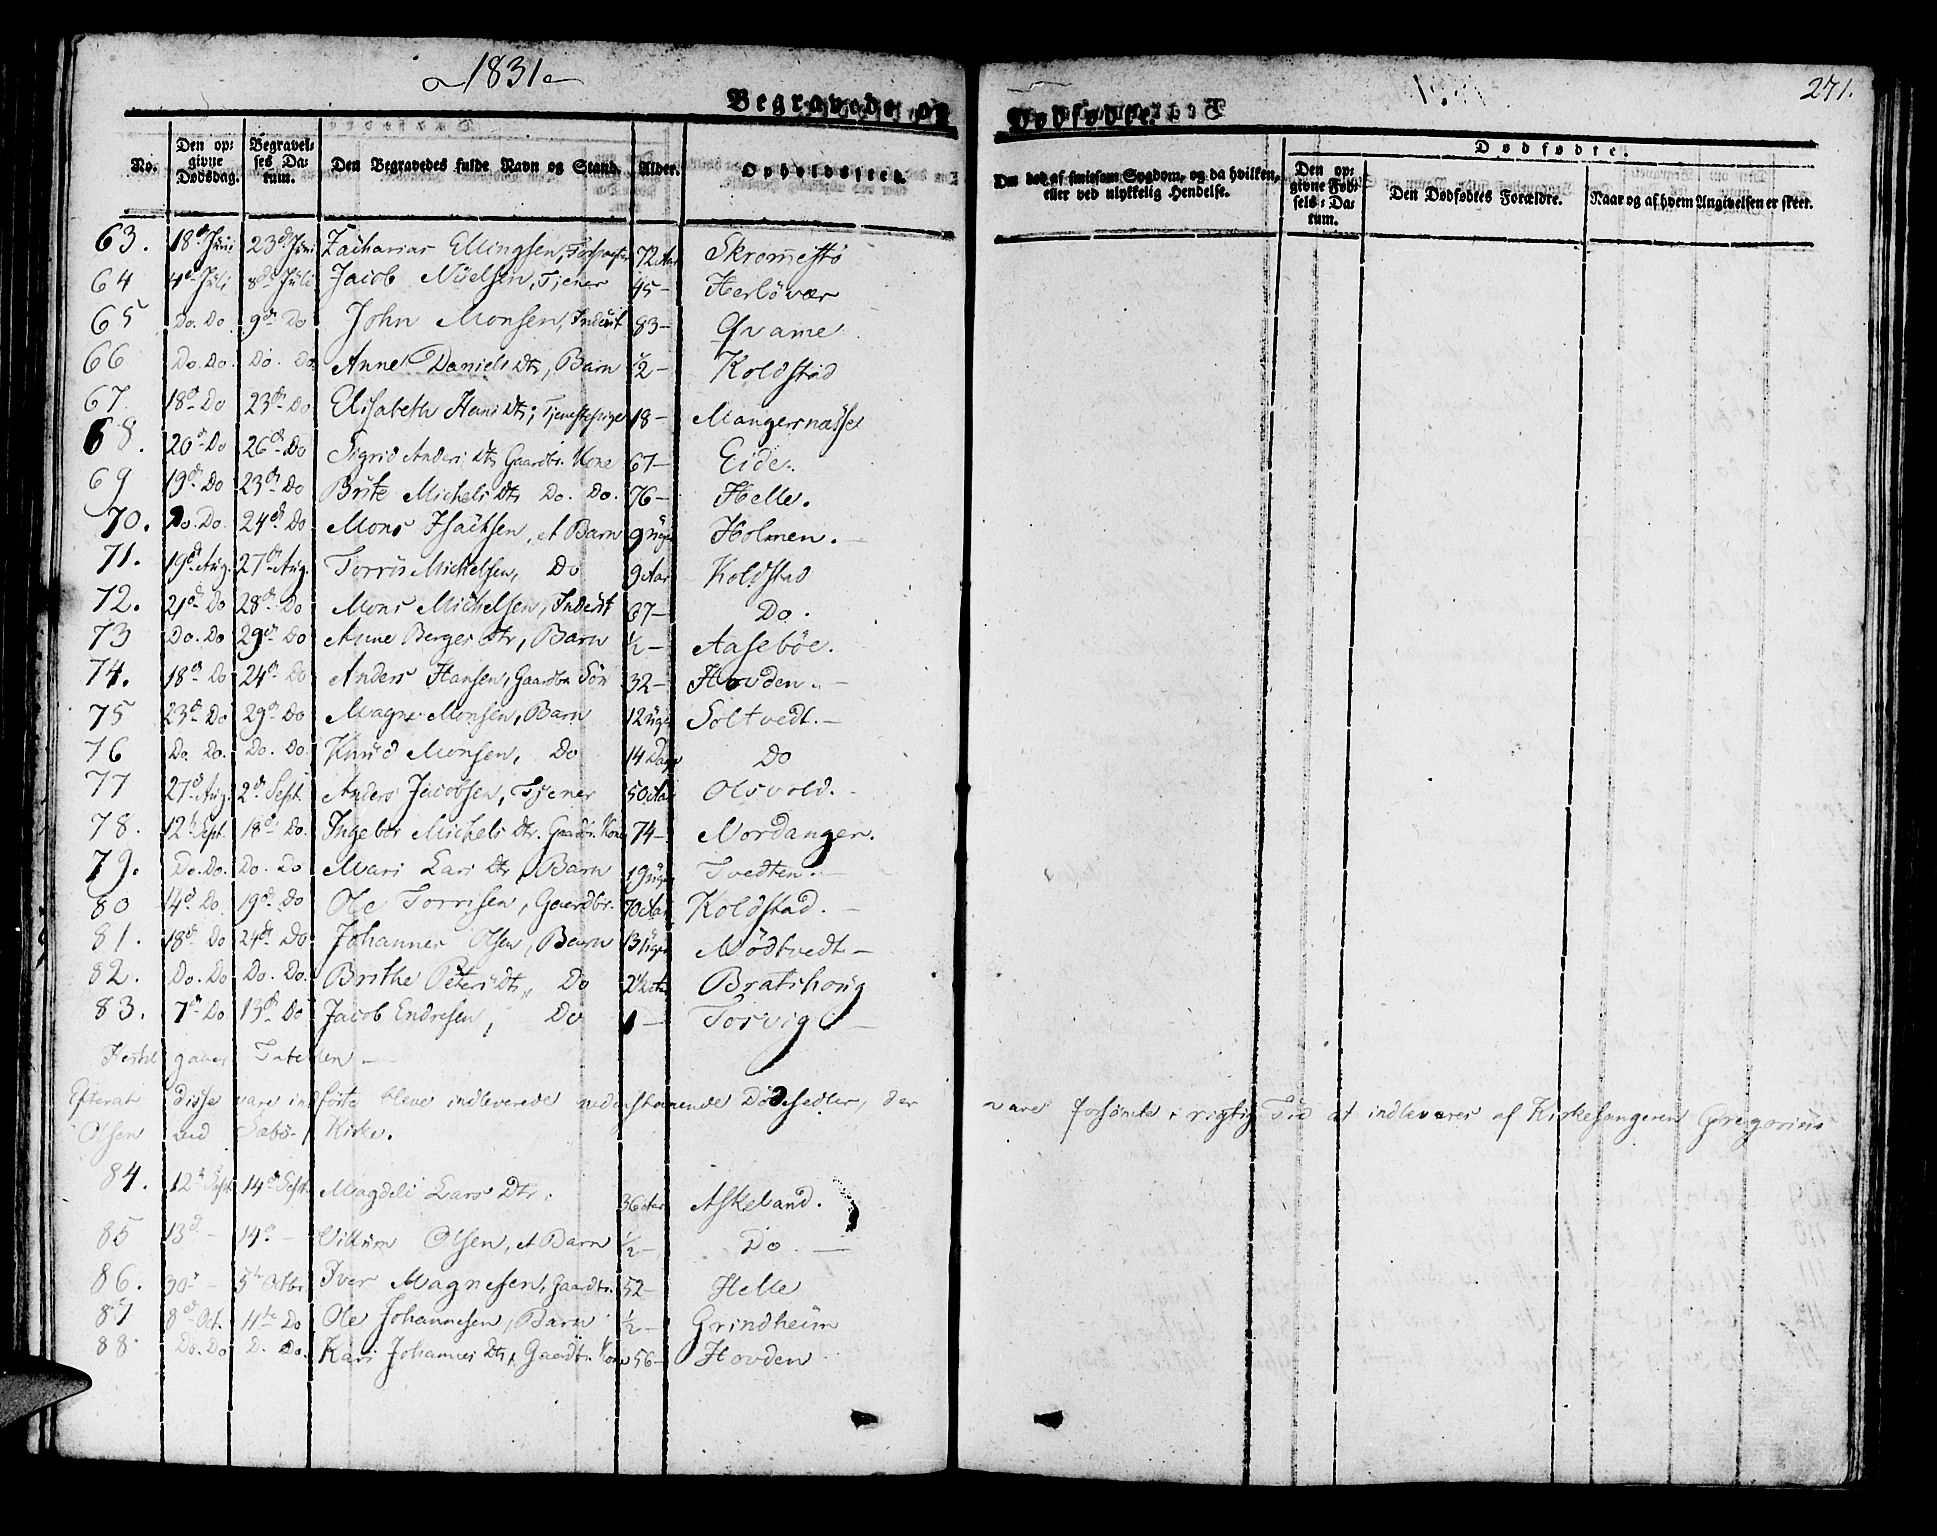 1831
271.
Begravede og Dødfødte.
No. Den opgivne Dødsdag. Begravelses Datum. Den Begravedes fulde Navn og Stand. Alder. Opholdssted. Om død af smitsom Sygdom, og da hvilken, eller ved ulykkelig Hendelse. Dødfødte. Den opgivne Fødsels-Datum. Den Dødfødtes Forældre. Naar og af hvem Angivelsen er skeet.
63. 18d Juni 23d Juni Zacharias Ellingsen, 72 Aar Skromestø
64 4d Juli 8d Juli Jacob Nielsen, Tjener 45- Herløvær
65 Do. Do. 9d Do John Monsen, Inderst 83- Qvame
66 Do. Do. Do. Do. Anne Daniels Dtr, Barn ½- Koldstad
67 18d Do 23d Do Elisabeth Hans Dtr, Tjenestepige 18- Mangersnæsse
68. 20d Do 26d Do Sigrid Anders Dtr Gaardbr. Kone 67- Eide.
69 19d Do 23d Do Brite Michels Dtr Do. Do. 76- Helle.
70. Do. Do. 24d Do Mons Isacksen, et Barn 9 Uger Holmen.
71. 19d Aug. 27d Aug. Torris Michelsen, Do 9 Aar Koldstad
72. 21d Do 28d Do Mons Michelsen, Inderst 67- Do.
73 Do. Do 29d Do Anne Berges Dtr, Barn ½- Aasebøe.
74. 18d Do 24d Do Anders Hansen, Gaardbr. Søn 32- Hovden.-
75 23d Do 29d Do Magne Monsen, Barn 12 Uger Soltvedt.-
76 Do. Do. Do. Do. Knud Monsen, Do 14 Dage Do
77 27d Aug. 2d Sept. Anders Jacobsen, Tjener 50 Aar Olsvold.-
78. 12t Sept. 18d Do. Ingebor Michels Dtr. Gaardbr. Kone 74- Nordanger.
79. Do. Do. Do. Do Mari Lars Dtr, Barn 19 Uger Tvedten.-
80 14d Do. 19d Do Ole Torrisen, Gaardbr. 70 Aar Koldstad.-
81. 18d Do 24d Do Johannes Olsen, Barn 13 Uger Mødtvedt-
82. Do. Do Do. Do. Brithe Peters Dtr, Do 2½ Aar Bratshoug
83. 7d Do. 13d Do Jacob Endresen, Do 1- Torvig-
Hertil gaaer Tabellen.-
Efterat disse vare indførte bleve indleverede nedenstaaende Dødsedler, der vare forsømte i rigtig Tid at indleveres af Kirkesangeren Gregorius
Olsen ved Sæbø- Kirke.
84. 12t Sept. 14d Sept. Magdeli Lars Dtr. 36 Aar Askeland.
85 13d - 14d - Villum Olsen, et Barn ½- Do.-
86. 30d - 5t Octbr. Iver Magnesen, Gaardbr. 52- Helle
87 8d Oct. 4te Do Ole Johannesen, Barn ½- Grindheim
88 Do. Do D. Do. Kari Johannes Dtr, Gaardbr. Kone 56- Hovden